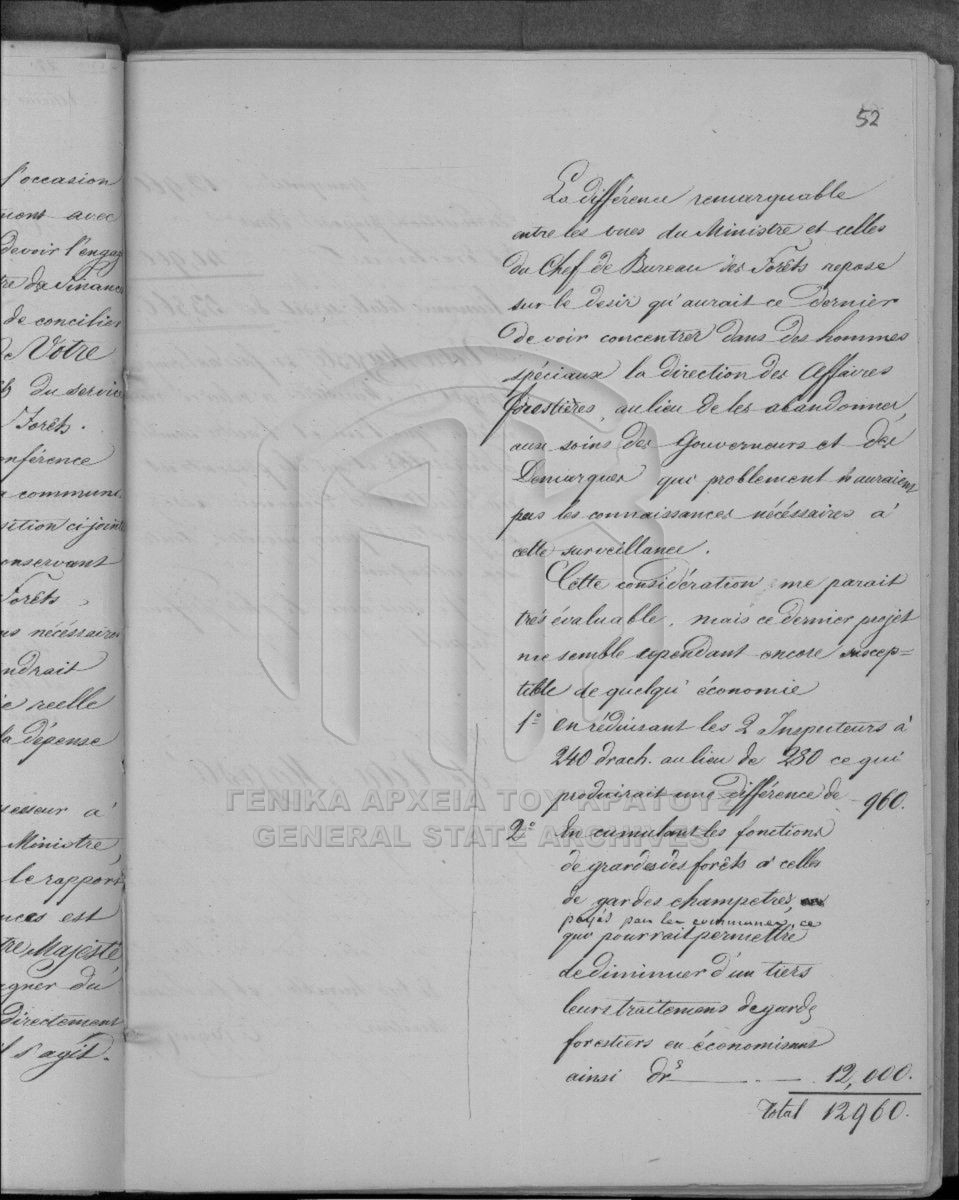 l'occasion
avec
devoir l'engag
de Finances
de concilier
Votre
du service
Forêts.
conférence
communi
ci jointe
conservant
Forêts,
nécessaires
reelle
la dépense
à
Ministre,
le rapport
est
Majesté
du
directement
s'agit.
52
La différence remarquable
entre les vues du Ministre et celles
du Chef de Bureau des Forêts repose
sur le desir qu'aurait ce Dernier
de voir concentrer dans des hommes
spéciaux la direction des Affaires
forestières, au lieu de les abandonner,
aux soins des Gouverneurs et des
Demarques qui problement n'auraient
pas les connaissances nécéssaires à
cette surveillance.
Cette considération me parait
très évaluable, mais ce dernier projet
me semble cependant encore suscep=
tible de quelqu' économie
1° en réduisant les 2 Inspecteurs à
240 drach. au lieu de 280 ce qui
produirait une différence de - 960.
2° En cumulant les fonctions
de grardes des forêts à celles
de gardes champetres,
payés par les communes, ce
qui pourrait permettre
de diminuer d'un tiers
leurs traitemens de gardes
forestiers en économisant
ainsi Drs 12,000.
Total 12960.
ΓΕΝΙΚΑ ΑΡΧΕΙΑ ΤΟΥ ΚΡΑΤΟΥΣ
GENERAL STATE ARCHIVES